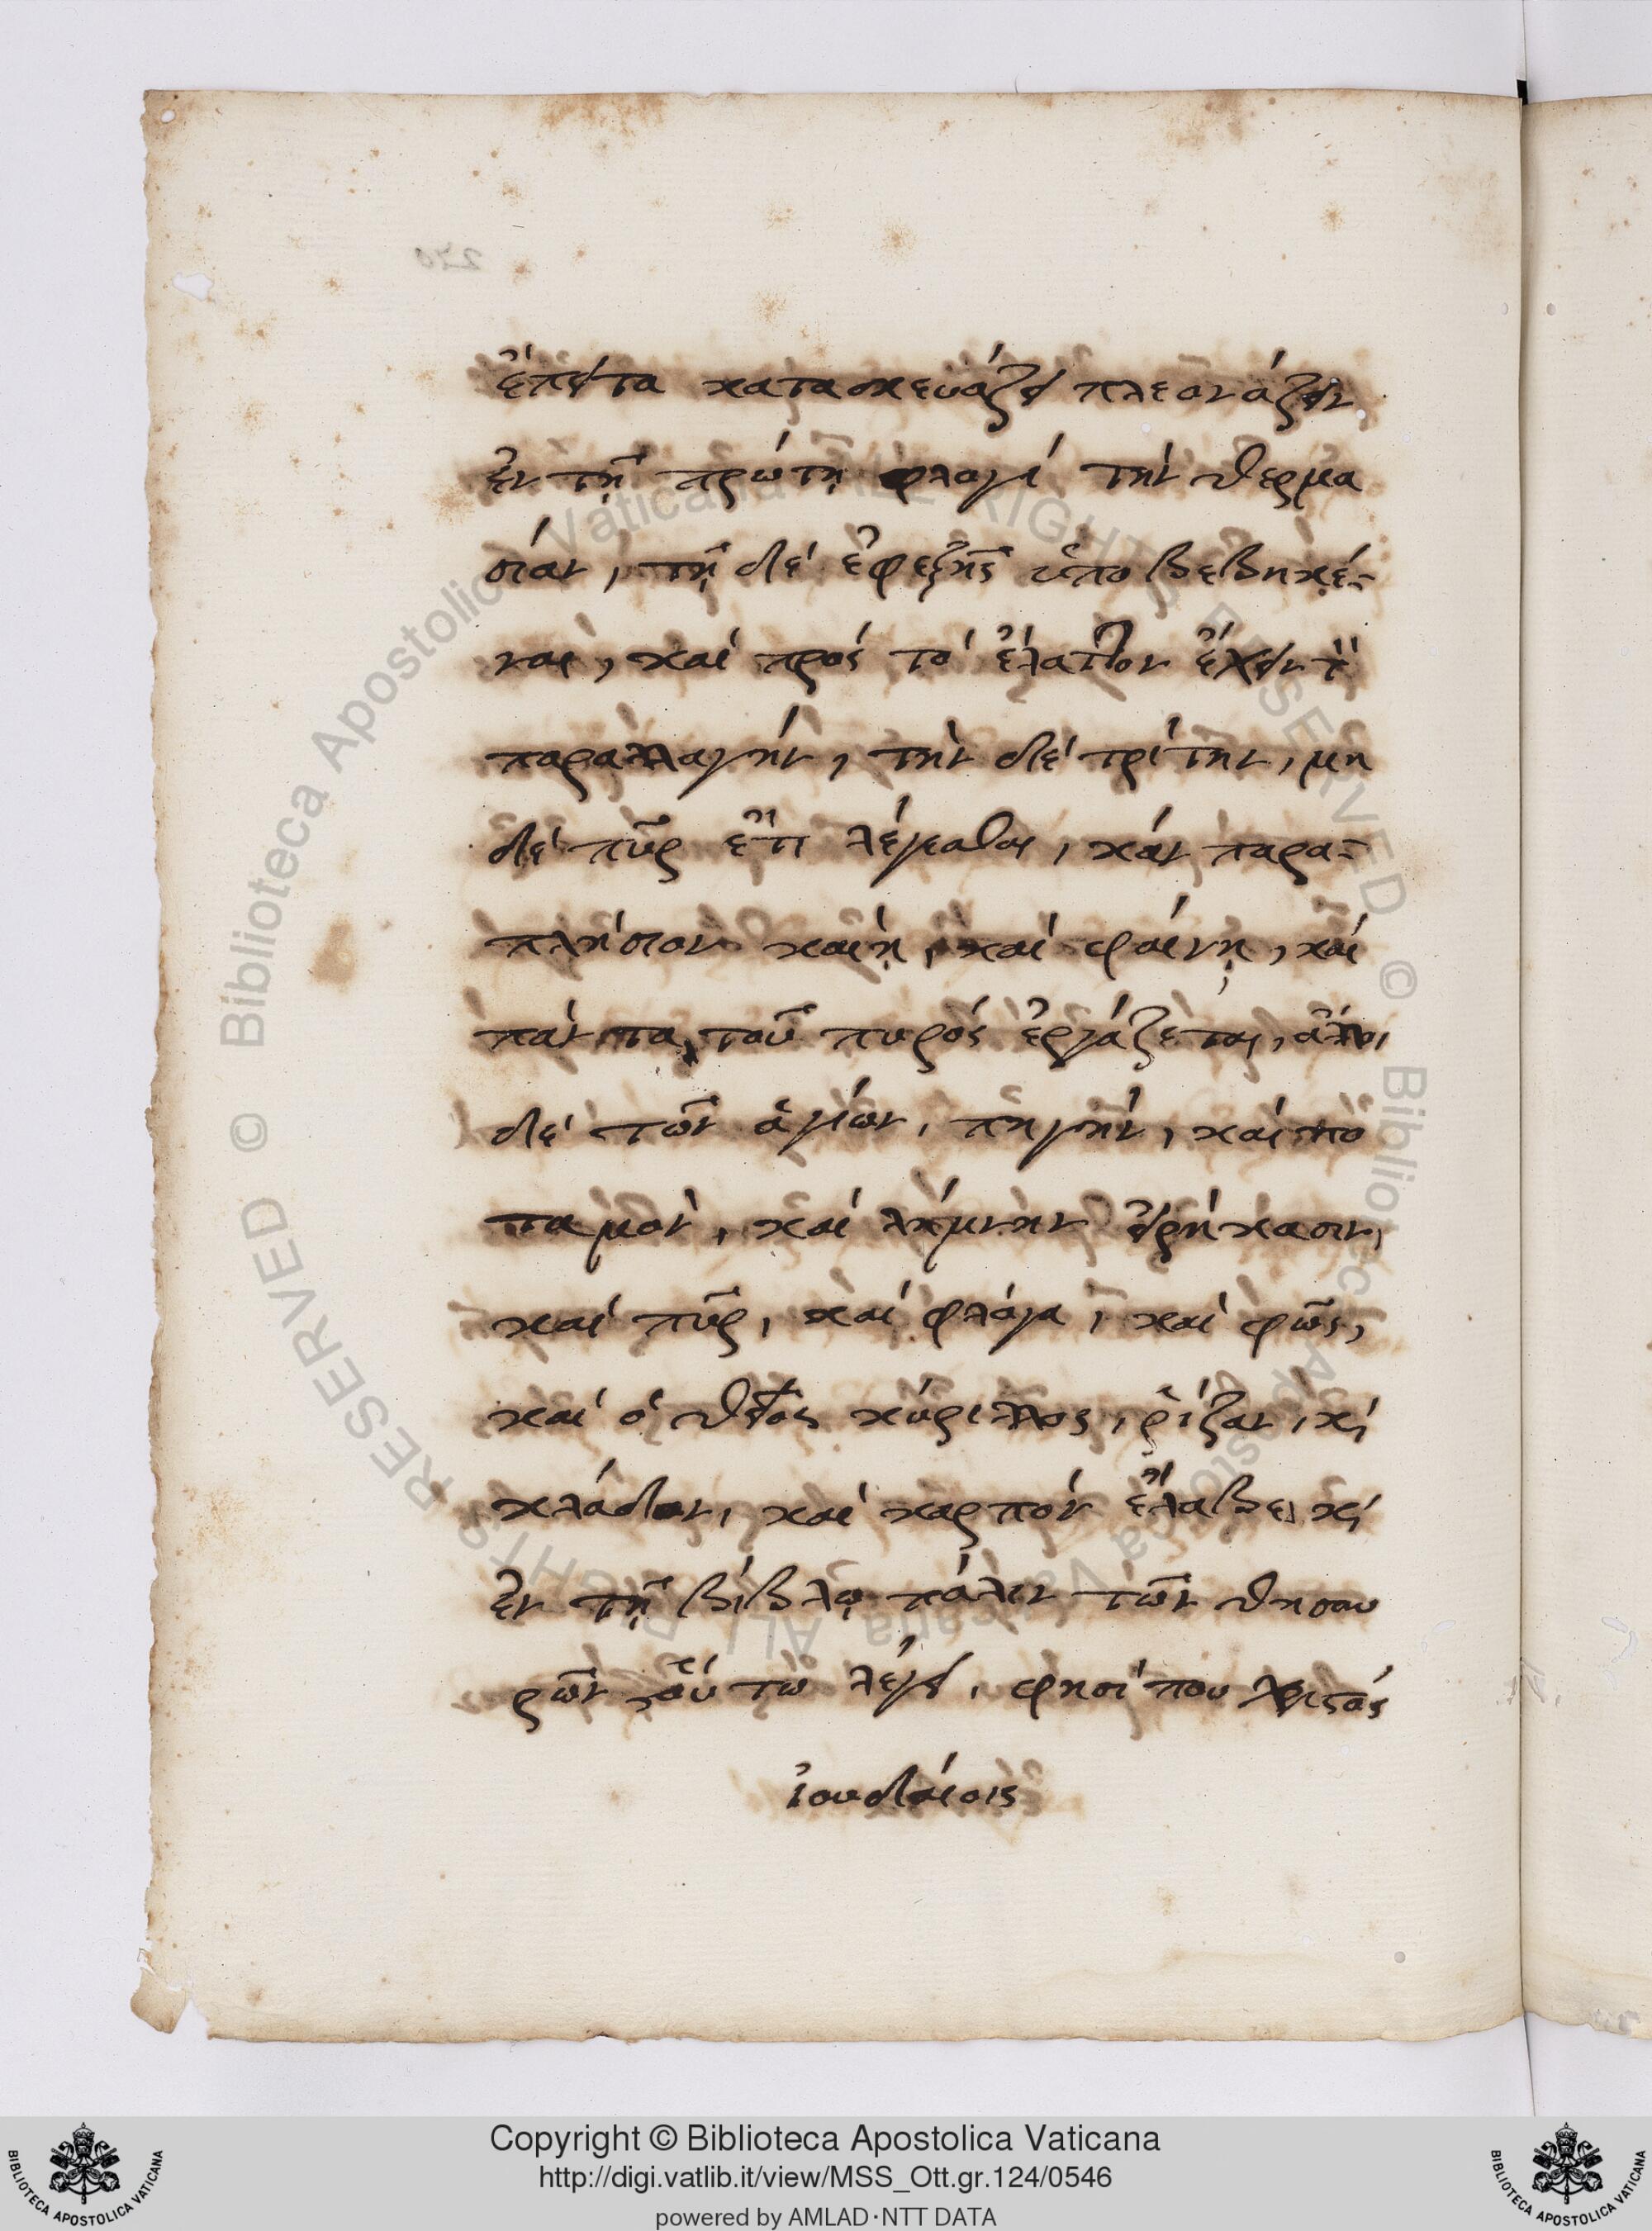 ἔπειτα κατασκευάζει πλεονάζειν
ἐν τῇ πρώτῃ φλογὶ τὴν θερμα
σίαν, τῇ δὲ ἐφεξῆς ὑποβεβηκέ-
ναι, καὶ πρὸς τὸ ἔλαττον ἔχειν τὴν
παραλλαγὴν, τὴν δὲ τρίτην, μη
δὲ πῦρ ἔτι λέγεσθαι, κἂν παρα-
πλήσιον καίῃ, καὶ φαίνῃ, καὶ
πάντα τοῦ πυρὸς ἐργάζεται, ἄλλοι
δὲ τῶν ἁγίων, πηγὴν, καὶ πο
ταμὸν, καὶ λίμνην εἰρήκασιν,
καὶ πῦρ, καὶ φλόγα, καὶ φῶς,
καὶ ὁ θεῖος κύριλλος, ῥίζαν, κὶ
κλάδον, καὶ καρπὸν ἔλαβε, κὶ
ἐν τῇ βίβλῳ πάλιν τῶν θησαυ
ρῶν οὕτω λέγει, φησί που χριστὸς
ἰουδαίοις
270
Copyright © Biblioteca Apostolica Vaticana
http://digi.vatlib.it/view/MSS_Ott.gr.124/0546
powered by AMLAD·NTT DATA
BIBLIOTECA APOSTOLICA VATICANA
BIBLIOTECA APOSTOLICA VATICANA
© Biblioteca Apostolica Vaticana ALL RIGHTS RESERVED © Biblioteca Apostolica Vaticana ALL RIGHTS RESERVED